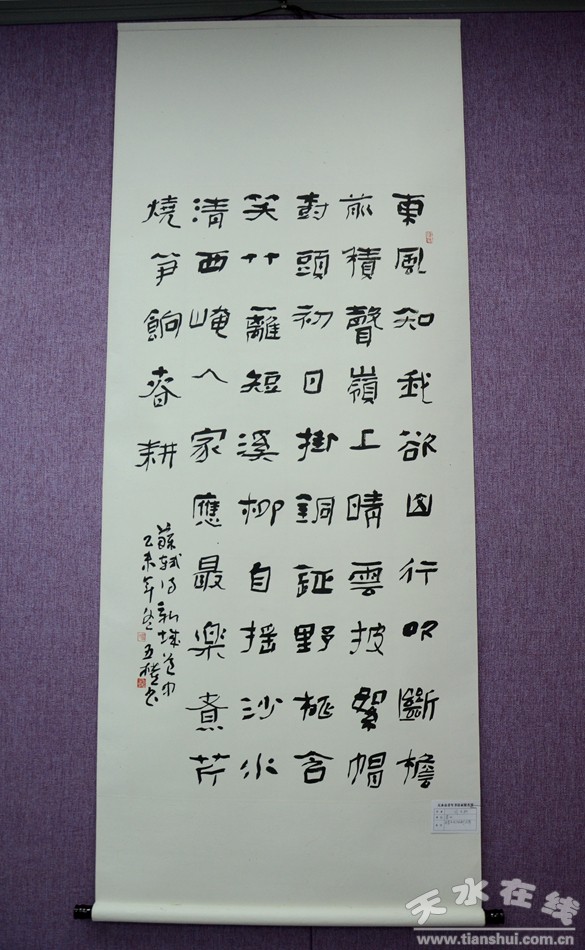 東風知我欲山行吹斷檐
前積聲嶺上晴雲披絮帽
尌頭初日掛銅鉦野桃含
笑竹籬短溪柳自搖沙水
清西崦人家應最樂煮芹
燒笋餉春耕
蘇軾詩新城道中
乙未年冬
天水在线
www.tianshui.com.cn